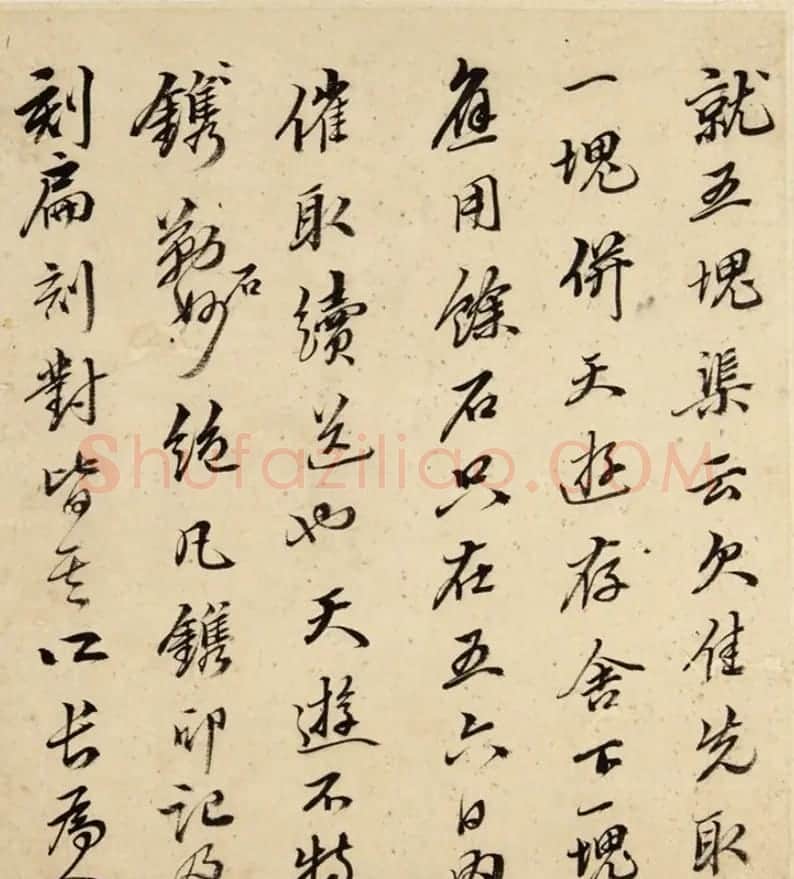 就五塊渠云欠佳先取
一塊併天遊存舍下一塊
應用餘石只在五六日内
催取續送也天遊不特
鐫勒石妙絶凡鐫印記及
刻扁刻對皆其所長為
Shufaziliao.COM